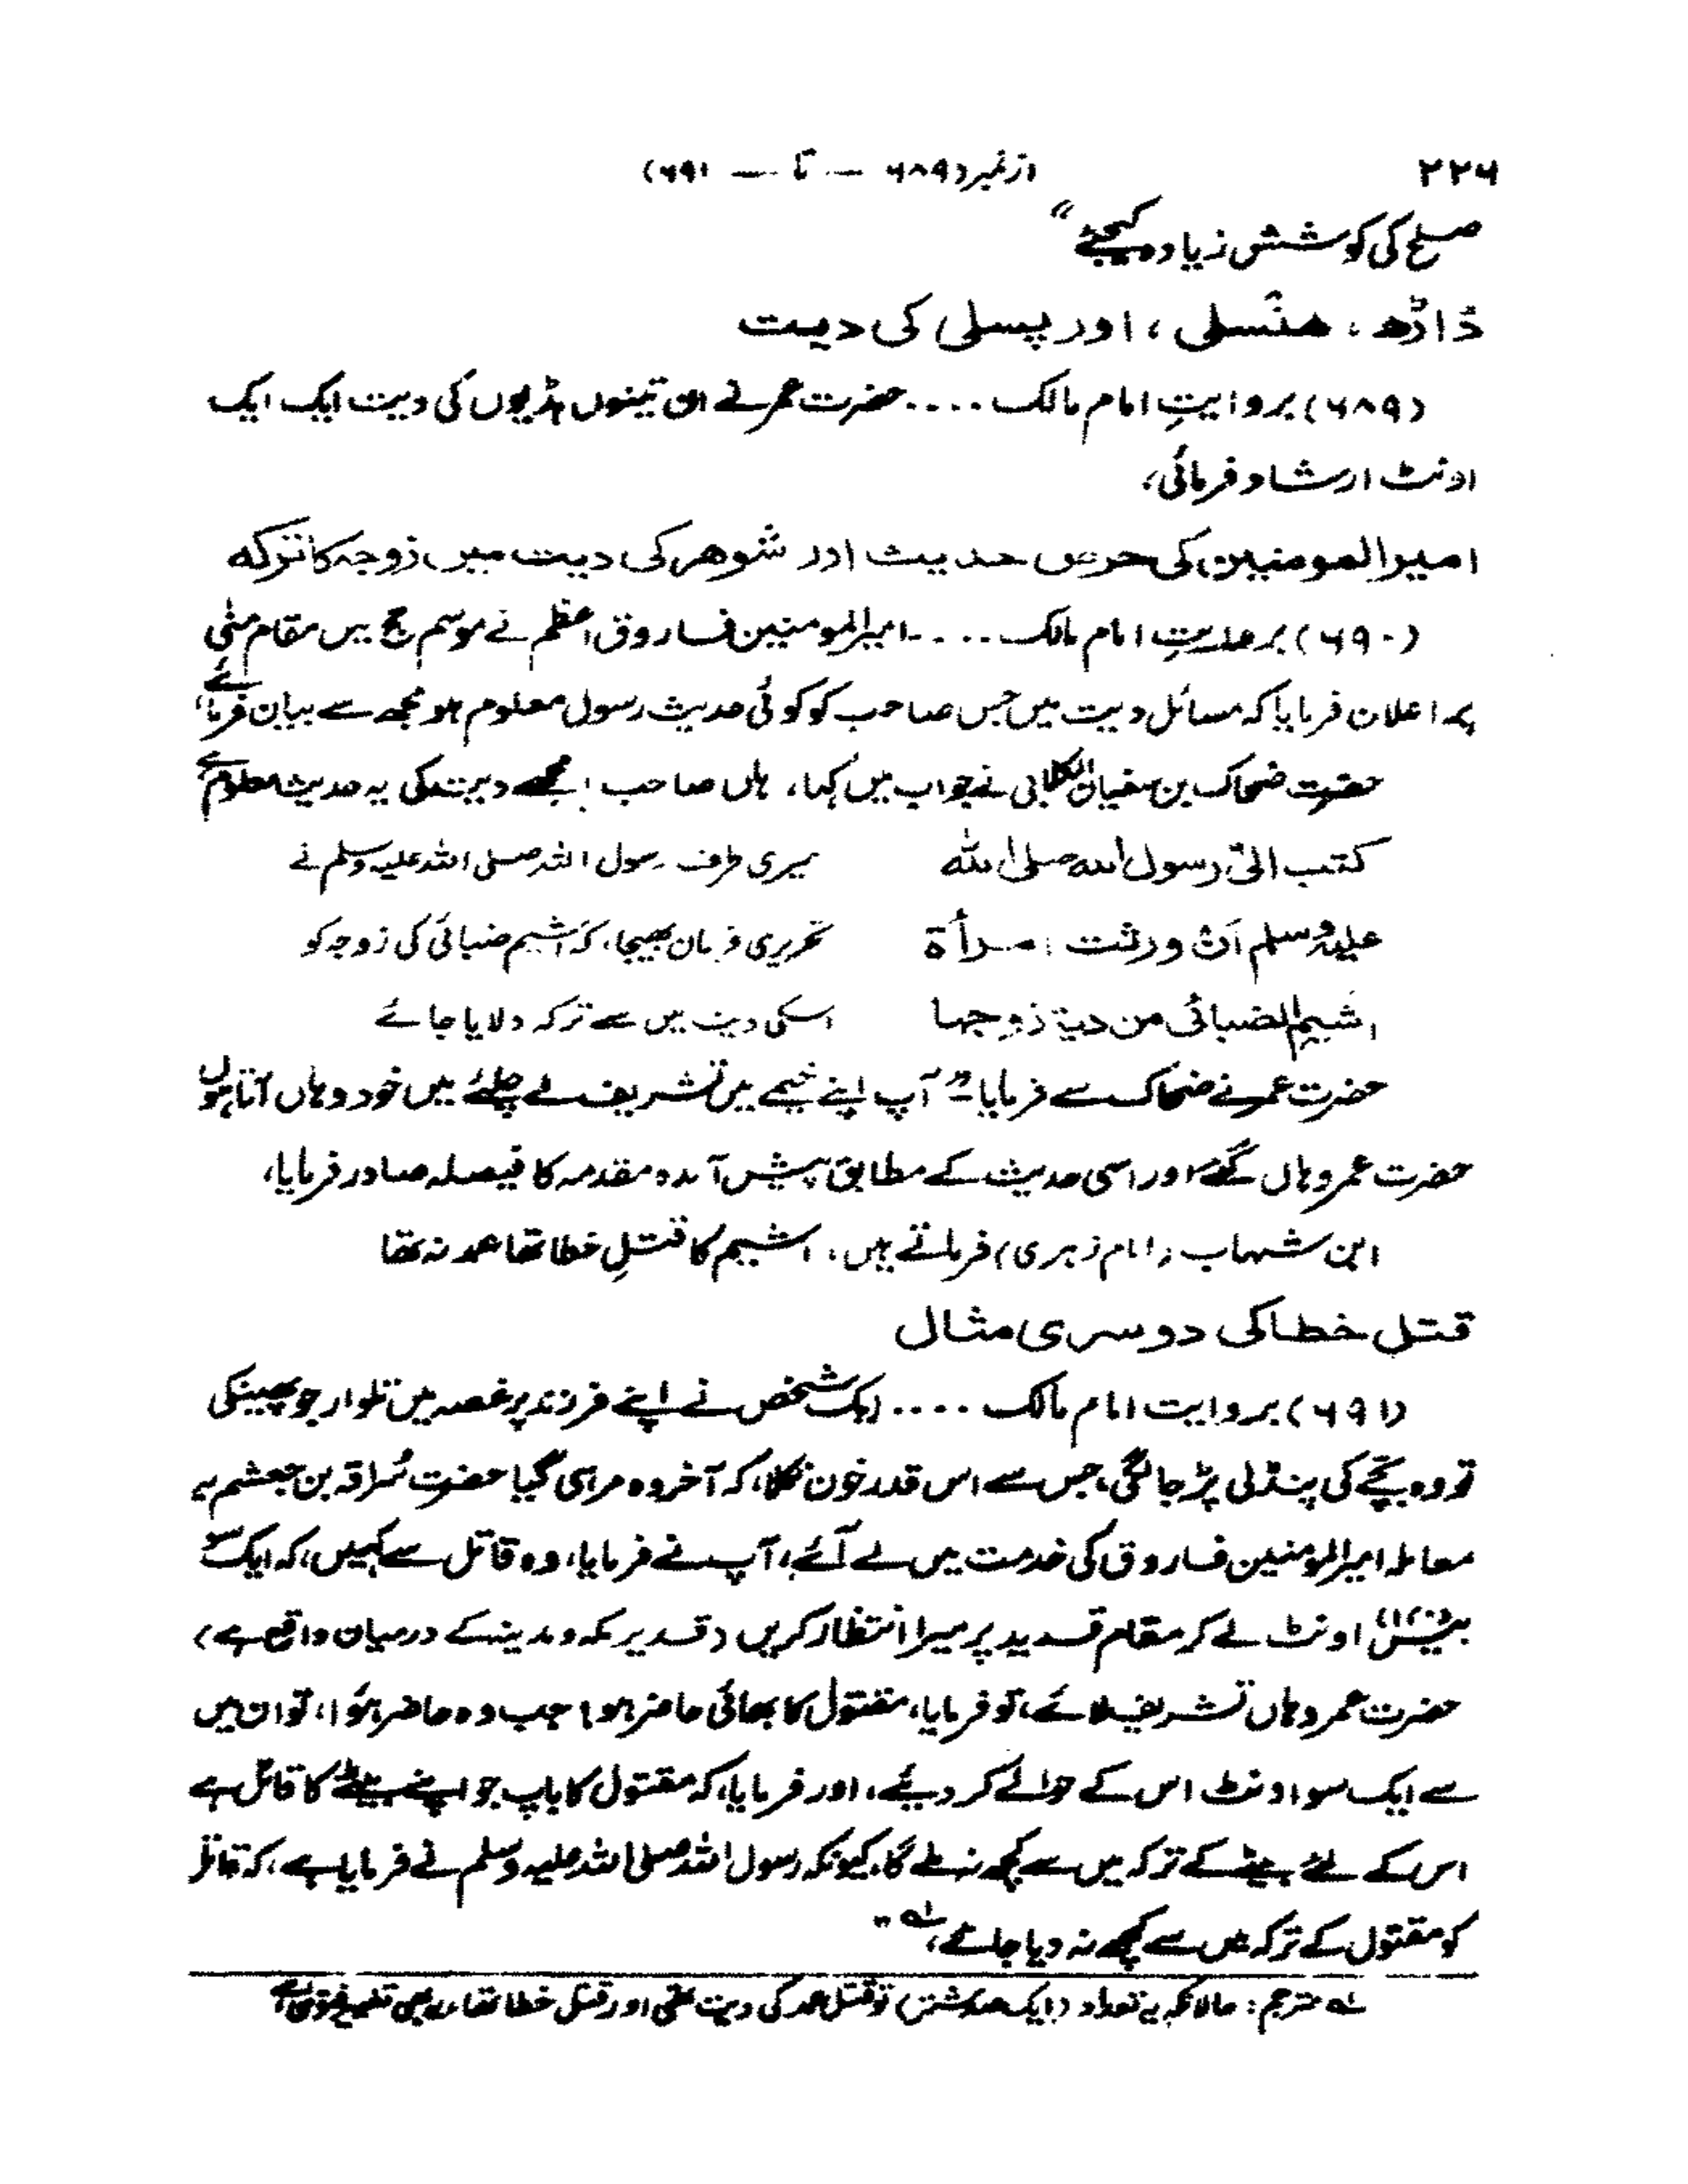 ۲۲۶ از نمبر (۶۸۹ — تا — ۶۹۱)
صلح کی کوشش زیادہ کیجئے"
ڈاڑھ، ھنسلی، اور پسلی کی دیت
(۶۸۹) بروایتِ امام مالک .... حضرت عمر نے ان تینوں ہڈیوں کی دیت ایک ایک
اونٹ ارشاد فرمائی،
امیرالمومنین کی حرص حدیث اور شوھر کی دیت میں زوجہ کا ترکہ
(۶۹۰) بروایتِ امام مالک .... امیرالمومنین فاروق اعظم نے موسم حج میں مقام منٰی
پر اعلان فرمایا کہ مسائل دیت میں جس صاحب کو کوئی حدیث رسول معلوم ہو مجھ سے بیان فرمائے،
حضرت ضحاک بن سفیان الکلابی نے جواب میں کہا، ہاں صاحب! مجھے دیت کی یہ حدیث معلوم ہے
کتب الیّ رسول الله صلی الله میری طرف رسول اللہ صلی اللہ علیہ وسلم نے
علیه وسلم اَنْ ورثت امرأة تحریری فرمان بھیجا، کہ اشیم ضبائی کی زوجہ کو
اشیم الضبائی من دیة زوجها اسکی دیت میں سے ترکہ دلایا جائے
حضرت عمر نے ضحاک سے فرمایا "آپ اپنے خیمے میں تشریف لے چلئے میں خود وہاں آتا ہوں
حضرت عمر وہاں گئے اور اسی حدیث کے مطابق پیش آمدہ مقدمہ کا فیصلہ صادر فرمایا،
ابن شہاب (امام زہری) فرماتے ہیں، اشیم کا قتلِ خطا تھا عمد نہ تھا
قتل خطا کی دوسری مثال
(۶۹۱) بروایت امام مالک .... ایک شخص نے اپنے فرزند پر غصہ میں تلوار جو پھینکی
تو وہ بچے کی پنڈلی پڑ جا لگی، جس سے اس قدر خون نکلا، کہ آخر وہ مر ہی گیا حضرت سُراقہ بن جعشم یہ
معاملہ امیرالمومنین فاروق کی خدمت میں لے آئے، آپ نے فرمایا، وہ قاتل سے کہیں، کہ ایک سو
بیس (۱۲۰) اونٹ لے کر مقام قدید پر میرا انتظار کریں (قدیر مکہ و مدینہ کے درمیان واقع ہے)
حضرت عمر وہاں تشریف لائے، تو فرمایا، مقتول کا بھائی حاضر ہو! جب وہ حاضر ہُوا، تو ان میں
سے ایک سو اونٹ اس کے حوالے کر دیئے، اور فرمایا، کہ مقتول کا باپ جو اپنے بیٹے کا قاتل ہے
اس کے لئے بیٹے کے ترکہ میں سے کچھ نہ ملے گا، کیونکہ رسول اللہ صلی اللہ علیہ وسلم نے فرمایا ہے، کہ قاتل
کو مقتول کے ترکہ میں سے کچھ نہ دیا جائے، لہ"
لہ مترجم: حالانکہ یہ تعداد (ایک صد شتر) تو قتل عمد کی دیت تھی اور قتل خطا تھا